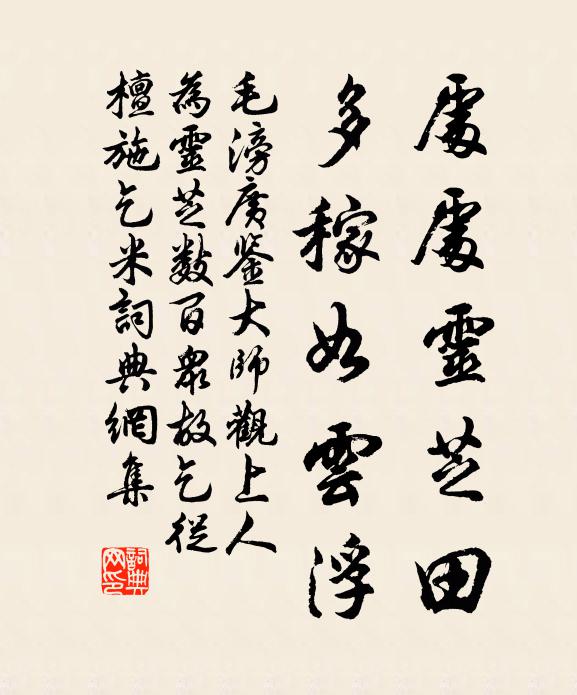 處處靈芝田
多稼如雲浮
毛滂廣鉴大師觀上人
為靈芝數百眾故乞從
檀施乞米詞典網集
詞典
网印